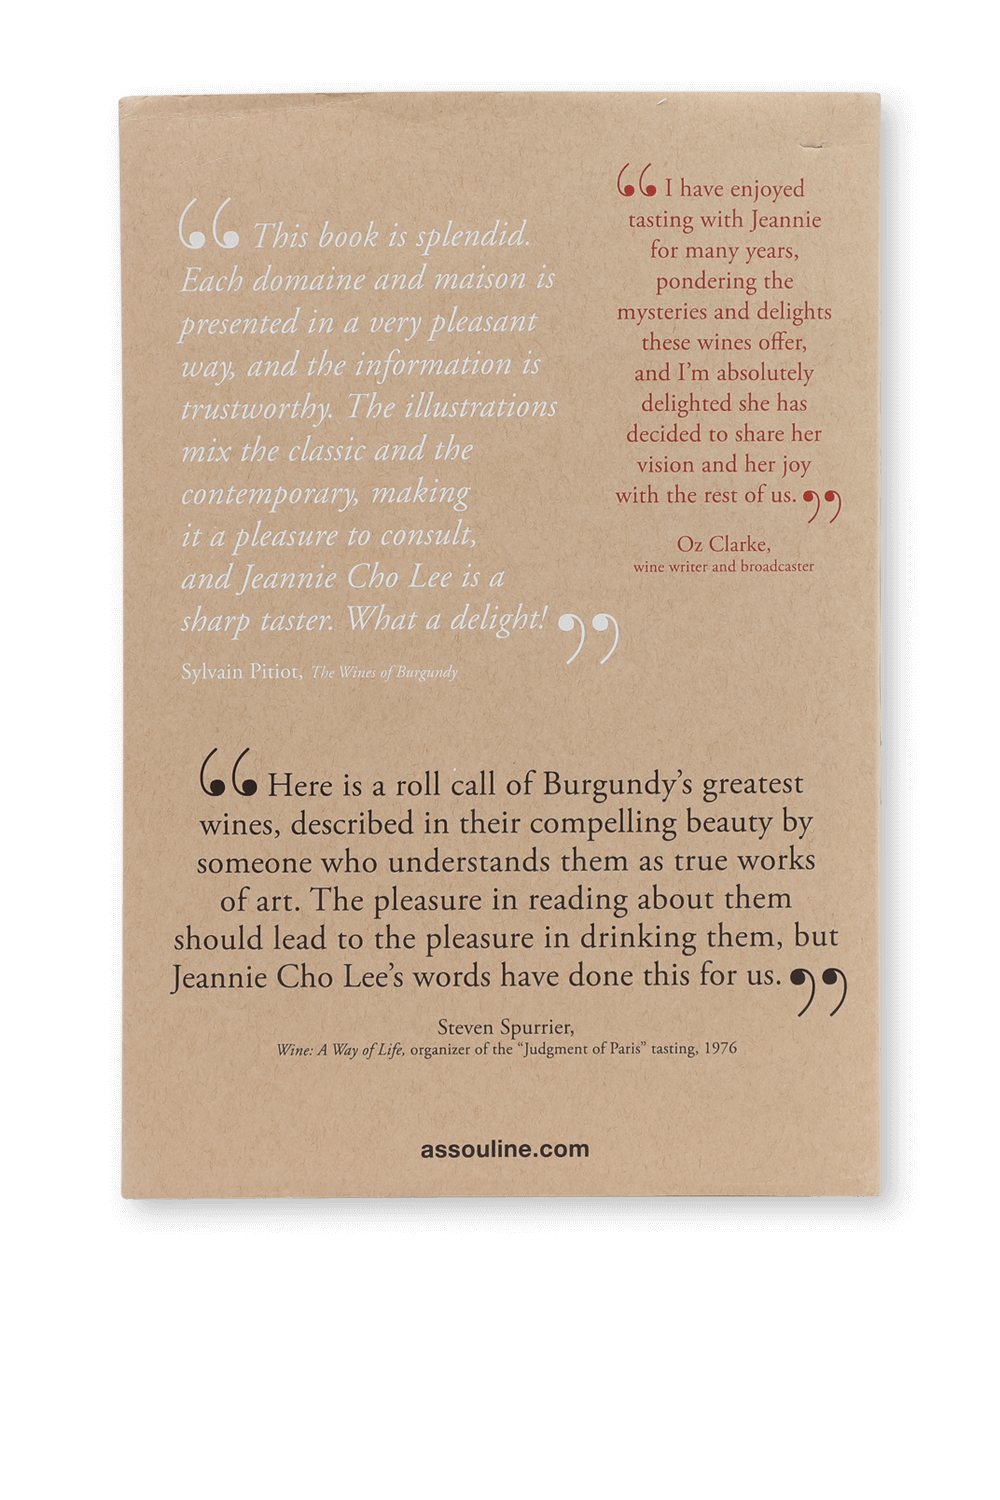 “ This book is splendid.
Each domaine and maison is
presented in a very pleasant
way, and the information is
trustworthy. The illustrations
mix the classic and the
contemporary, making
it a pleasure to consult,
and Jeannie Cho Lee is a
sharp taster. What a delight! ”
Sylvain Pitiot, The Wines of Burgundy
“ I have enjoyed
tasting with Jeannie
for many years,
pondering the
mysteries and delights
these wines offer,
and I’m absolutely
delighted she has
decided to share her
vision and her joy
with the rest of us. ”
Oz Clarke,
wine writer and broadcaster
“ Here is a roll call of Burgundy’s greatest
wines, described in their compelling beauty by
someone who understands them as true works
of art. The pleasure in reading about them
should lead to the pleasure in drinking them, but
Jeannie Cho Lee’s words have done this for us. ”
Steven Spurrier,
Wine: A Way of Life, organizer of the “Judgment of Paris” tasting, 1976
assouline.com